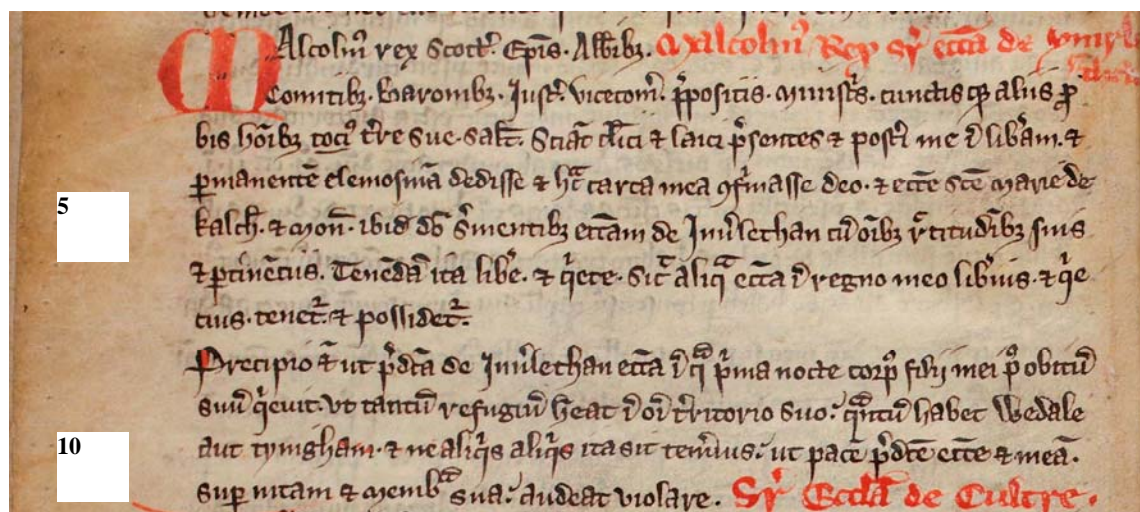 MAlcolm̄ rex Scott̄. Ep̄is. Abb̄ibꝫ. Malcolm̄ Rex sr̄ ecc̄a de
Comitibꝫ. Baronibꝫ. Just̄. vicecom̄. p̄positis. ministr̄s. cunctis qꝫ aliis ꝓ
bis hōibꝫ toci⁹ t̄re sue. salt̄. Sciāt cl̄ici ⁊ laici p̄sentes ⁊ post̄i me ī lib̄am. ⁊
ꝑmanentē elemosinā dedisse ⁊ hac carta mea ꝯfirmasse deo. ⁊ ecc̄e sc̄e marie de
5
kalch̄. ⁊ mon̄. ibid̄ dō s̄uientibꝫ ecc̄am de Inũlethan cū oībꝫ r̄titudībꝫ suis
⁊ ꝑtinenciis. Tenēdā ita lib̄e. ⁊ qͥete. sic̄ aliqͣ ecc̄a ī regno meo lib̄ius. ⁊ qͥe
cius. tenet̄. ⁊ possidet̄.
Precipio ⁊ ut p̄dc̄a de Inũlethan ecc̄a ī qͣ pͥma nocte corp⁹ filii mei p⁹ obitū
suū qͥeuit. vt tantū refugiū h̄eat ī oī t̄ritorio suo. qͣntū habet Wedale
10
aut tyningham. ⁊ ne aliqͥs aliqͥs ita sit tem̄ius. ut pacē p̄dc̄e ecc̄e ⁊ meā.
super uitam ⁊ membͣ sua. audeat violare. Sr̄ Eccl̄a de Cultre.